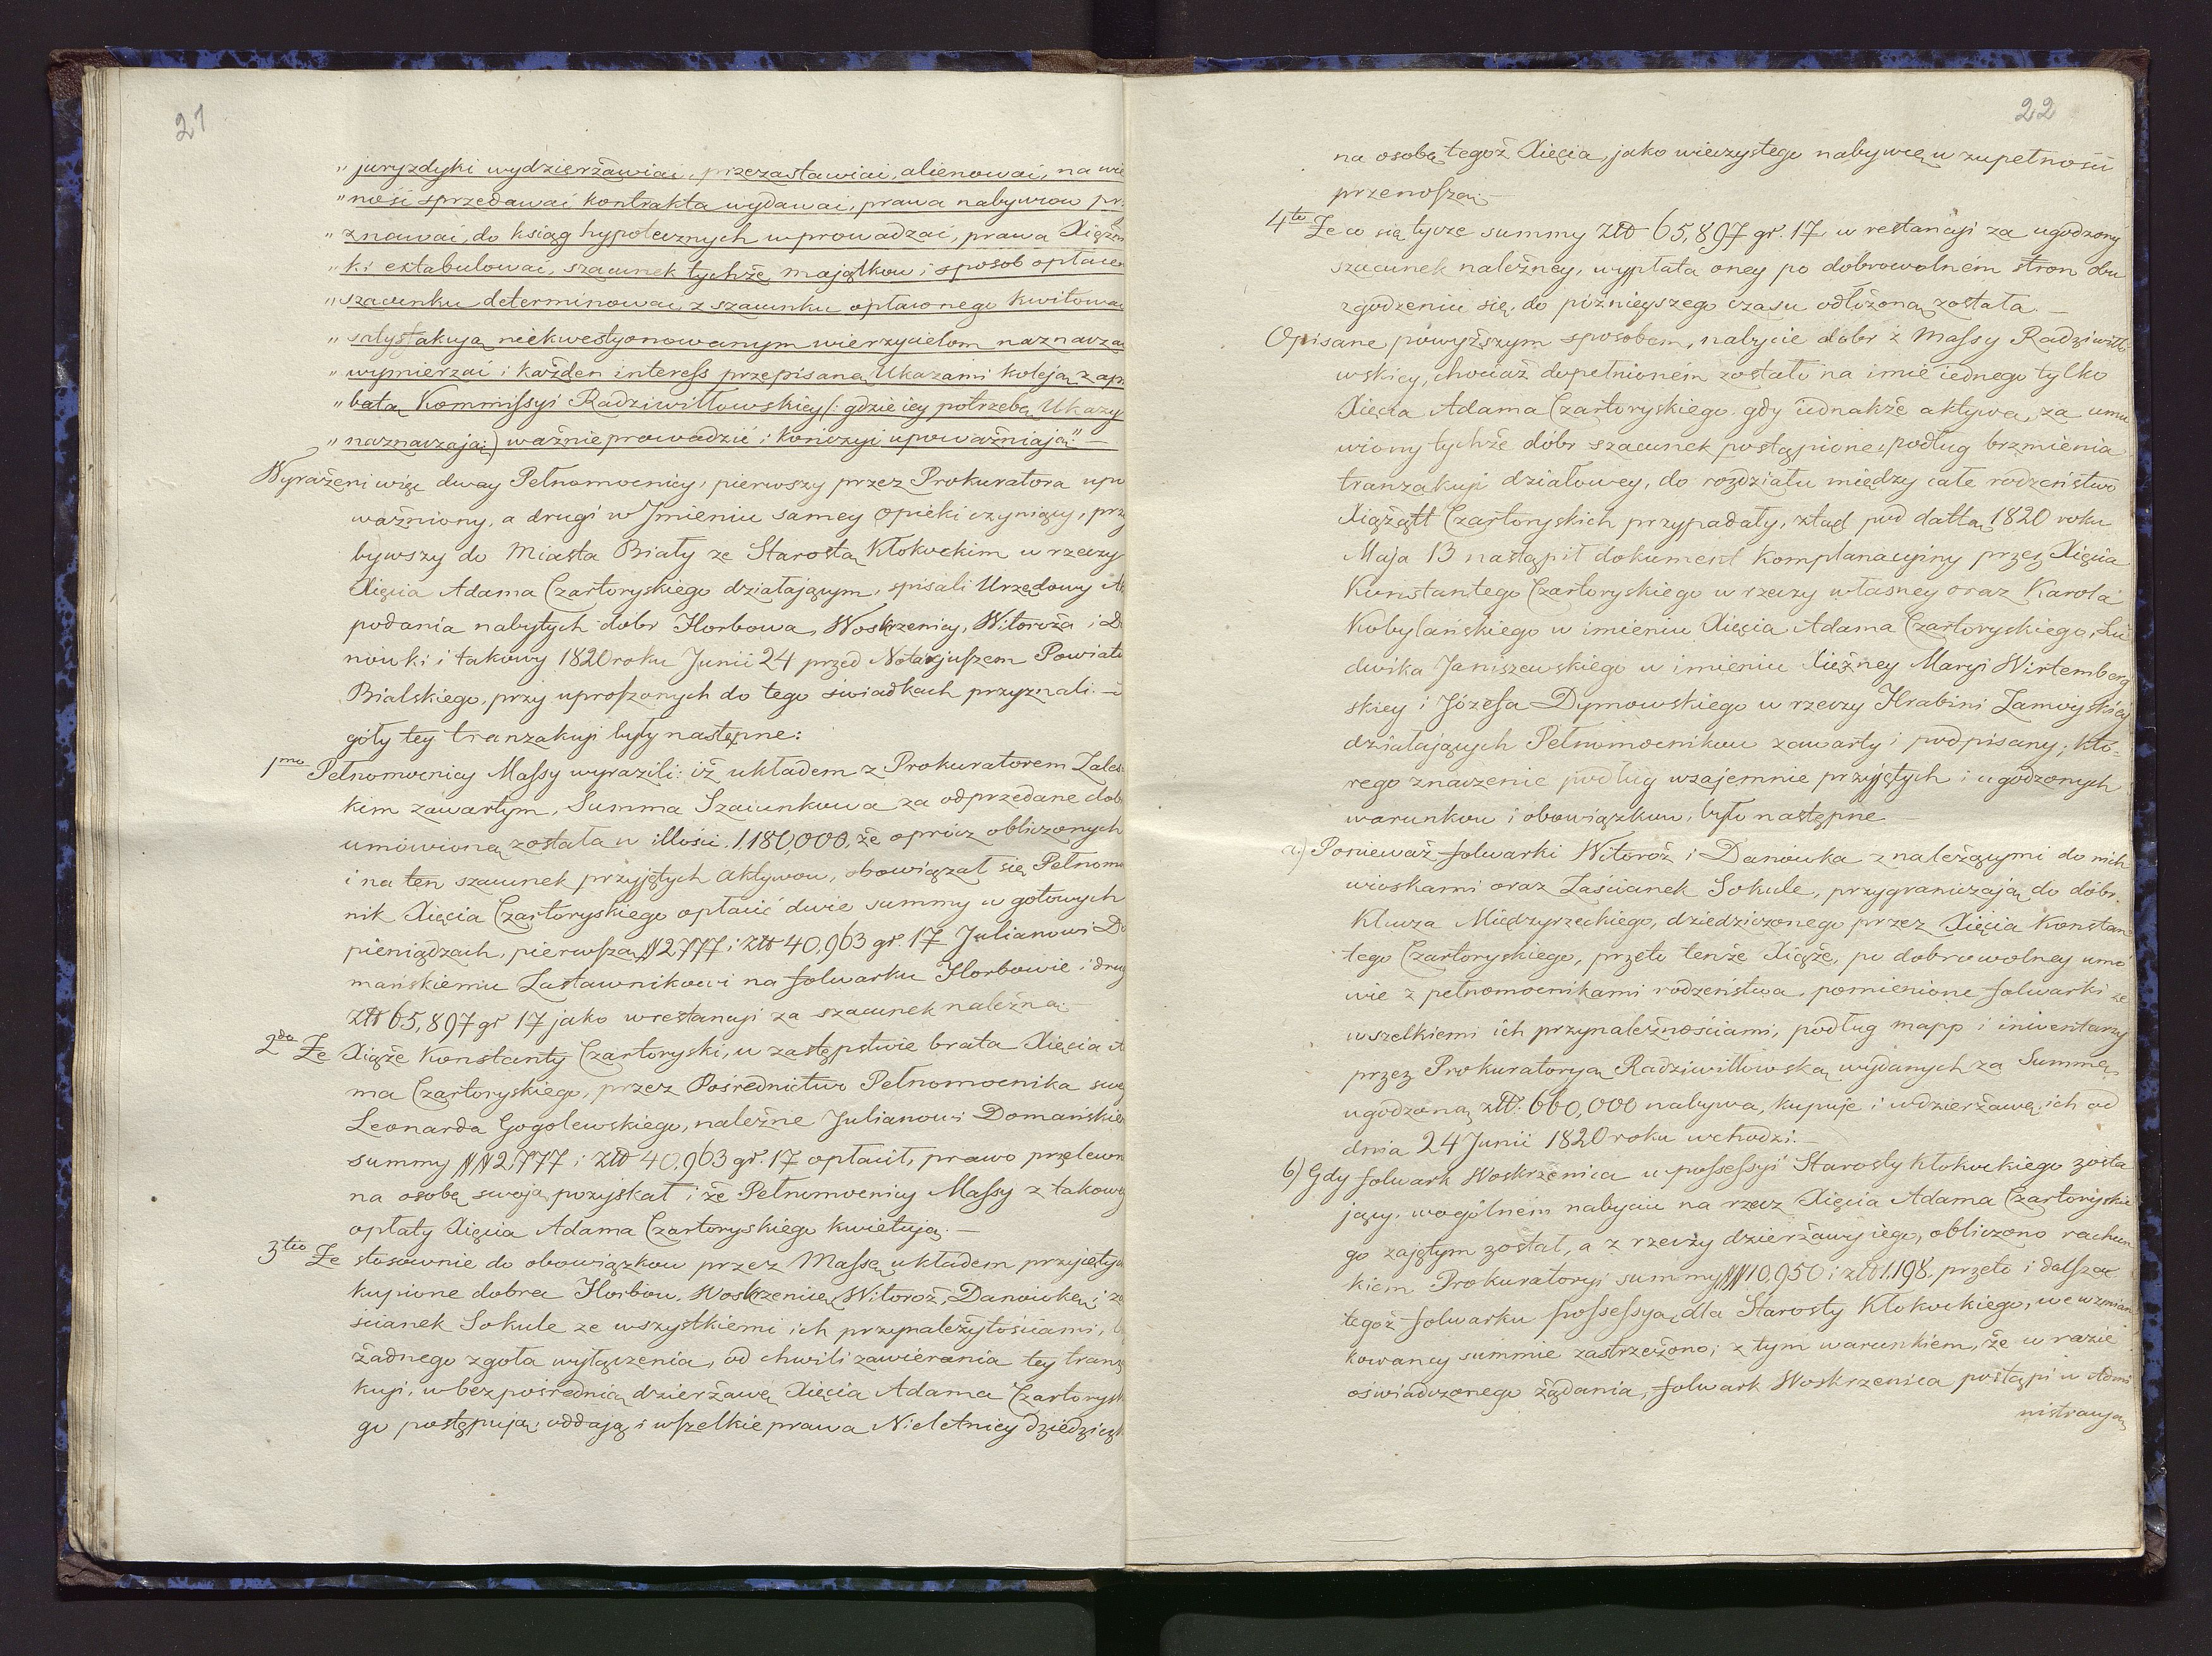 21
„juryzdyki wydzierżawiać, przezastawiać, alienować, na wie
„ność sprzedawać kontrakta wydawać, prawa nabywcow pr
„znawać, do ksiąg hypotecznych wprowadzać, prawa Xiężn
„ki extabulować, szacunek tychże majątkow i sposob opłace
„szacunku determinować, z szacunku opłaconego kwitować
„satysfakcyą niekwestyonowanym wierzycielom naznaczać
„wymierzać i każden interess przepisaną Ukazami koleją z ap
„batą Kommissyi Radziwiłłowskiey (: gdzie iey potrzebę Ukazy
„naznaczają :) ważnie prowadzić i kończyć upoważniają." —
Wyrażeni więc dway Pełnomocnicy, pierwszy przez Prokuratora upo
ważniony, a drugi w Jmieniu samey Opieki czyniący, prz
bywszy do Miasta Biały ze Starostą Kłokockim w rzeczy
Xięcia Adama Czartoryskiego działającym, spisali Urzędowy A
podania nabytych dóbr Horbowa, Woskrzenicy, Witoroża i D
nówki i takowy 1820 roku Junii 24 przed Notaryuszem Powiatu
Bialskiego, przy uproszonych do tego świadkach przyznali. —
góły tey tranzakcyi były następne:
1mo Pełnomocnicy Massy wyrazili: iż układem z Prokuratorem Zales
kim zawartym, Summa Szacunkowa za odprzedane dob
umówioną została w illości 1,180,000, że oprócz obliczonych
i na ten szacunek przyjętych aktywow, obowiązał się Pełnomo
nik Xięcia Czartoryskiego opłacić dwie summy w gotowych
pieniądzach, pierwszą # 2777 i złł 40,963 gr. 17 Julianowi Do
mańskiemu Zastawnikowi na folwarku Horbowie i drug
złł 65,897 gr 17 jako w restancyi za szacunek należną. —
2do Że Xiąże Konstanty Czartoryski, w zastępstwie brata Xięcia A
ma Czartoryskiego, przez Pośrednictwo Pełnomocnika sweg
Leonarda Gogolewskiego, należne Julianowi Domańskie
summy ## 2,777 i złł 40,963 gr. 17 opłacił, prawo przelewn
na osobę swoją pozyskał i że Pełnomocnicy Massy z takowe
opłaty Xięcia Adama Czartoryskiego kwietują. —
3tio Że stosownie do obowiązkow przez Massę układem przyjętyc
kupione dobra Horbow, Woskrzenicę, Witoroż, Danówkę i za
ścianek Sokule ze wszystkiemi ich przynależytościami, b
żadnego zgoła wyłączenia, od chwili zawierania tey tranz
kcyi, w bezpośrednią dzierżawę Xięcia Adama Czartorysk
go postępują i oddają i wszelkie prawa Nieletniey Dziedziczk
22
na osobę tegoż Xięcia, jako wieczystego nabywcę w zupełności
przenoszą. —
4to Że co się tycze summy złł 65,897 gr. 17, w restancyi za ugodzony
szacunek należney, wypłata oney po dobrowolném stron obu
zgodzeniu się, do pożnieyszego czasu odłożoną została. —
Opisane powyższym sposobem, nabycie dóbr z Massy Radziwiłło
wskiey, chociaż dopełnioném zostało na imie iednego tylko
Xięcia Adama Czartoryskiego, gdy iednakże aktywa, za umo
wiony tychże dóbr szacunek postąpione, podług brzmienia
tranzakcyi działowey, do rozdziału między całe rodzeństwo
Xiążątt Czartoryskich przypadały, ztąd pod dattą 1820 roku
Maja 13 nastąpił dokument komplanacyiny przez Xięcia
Konstantego Czartoryskiego w rzeczy własney oraz Karola
Kobylańskiego w imieniu Xięcia Adama Czartoryskiego, Lu
dwika Janiszewskiego w imieniu Xiężney Maryi Wirtemberg
skiey i Józefa Dymowskiego w rzeczy Hrabini Zamoyskiey
działających Pełnomocnikow zawarty i podpisany; któ-
rego znaczenie podług wzajemnie przyjętych i ugodzonych
warunkow i obowiązkow, było następne —
a.) Ponieważ folwarki Witoroż i Danówka z należącymi do nich
wioskami oraz Zaścianek Sokule, przygraniczają do dóbr
Klucza Międzyrzeckiego, dziedziczonego przez Xięcia Konstan
tego Czartoryskiego, przeto tenże Xiąże, po dobrowolney umo
wie z pełnomocnikami rodzeństwa, pomienione folwarki ze
wszelkiemi ich przynależnościami, podług mapp i inwentarzy
przez Prokuratoryą Radziwiłłowską wydanych za Summę
ugodzoną złł: 660,000 nabywa, kupuje i w dzierżawę ich od
dnia 24 Junii 1820 roku wchodzi. —
b) Gdy folwark Woskrzenica w possessyi Starosty Kłokockiego zosta
jący, w ogólném nabyciu na rzecz Xięcia Adama Czartoryskie
go zajętym został, a z rzeczy dzierżawy iego, obliczono rachun
kiem Prokuratoryi summy ## 10,950 i złł 1,198, przeto i dalszą
tegoż folwarku possessyą, dla Starosty Kłokockiego, we wzmian
kowaney summie zastrzeżono; z tym warunkiem, że w razie
oświadczonego żądania, folwark Woskrzenica postąpi w Admi
nistracyą